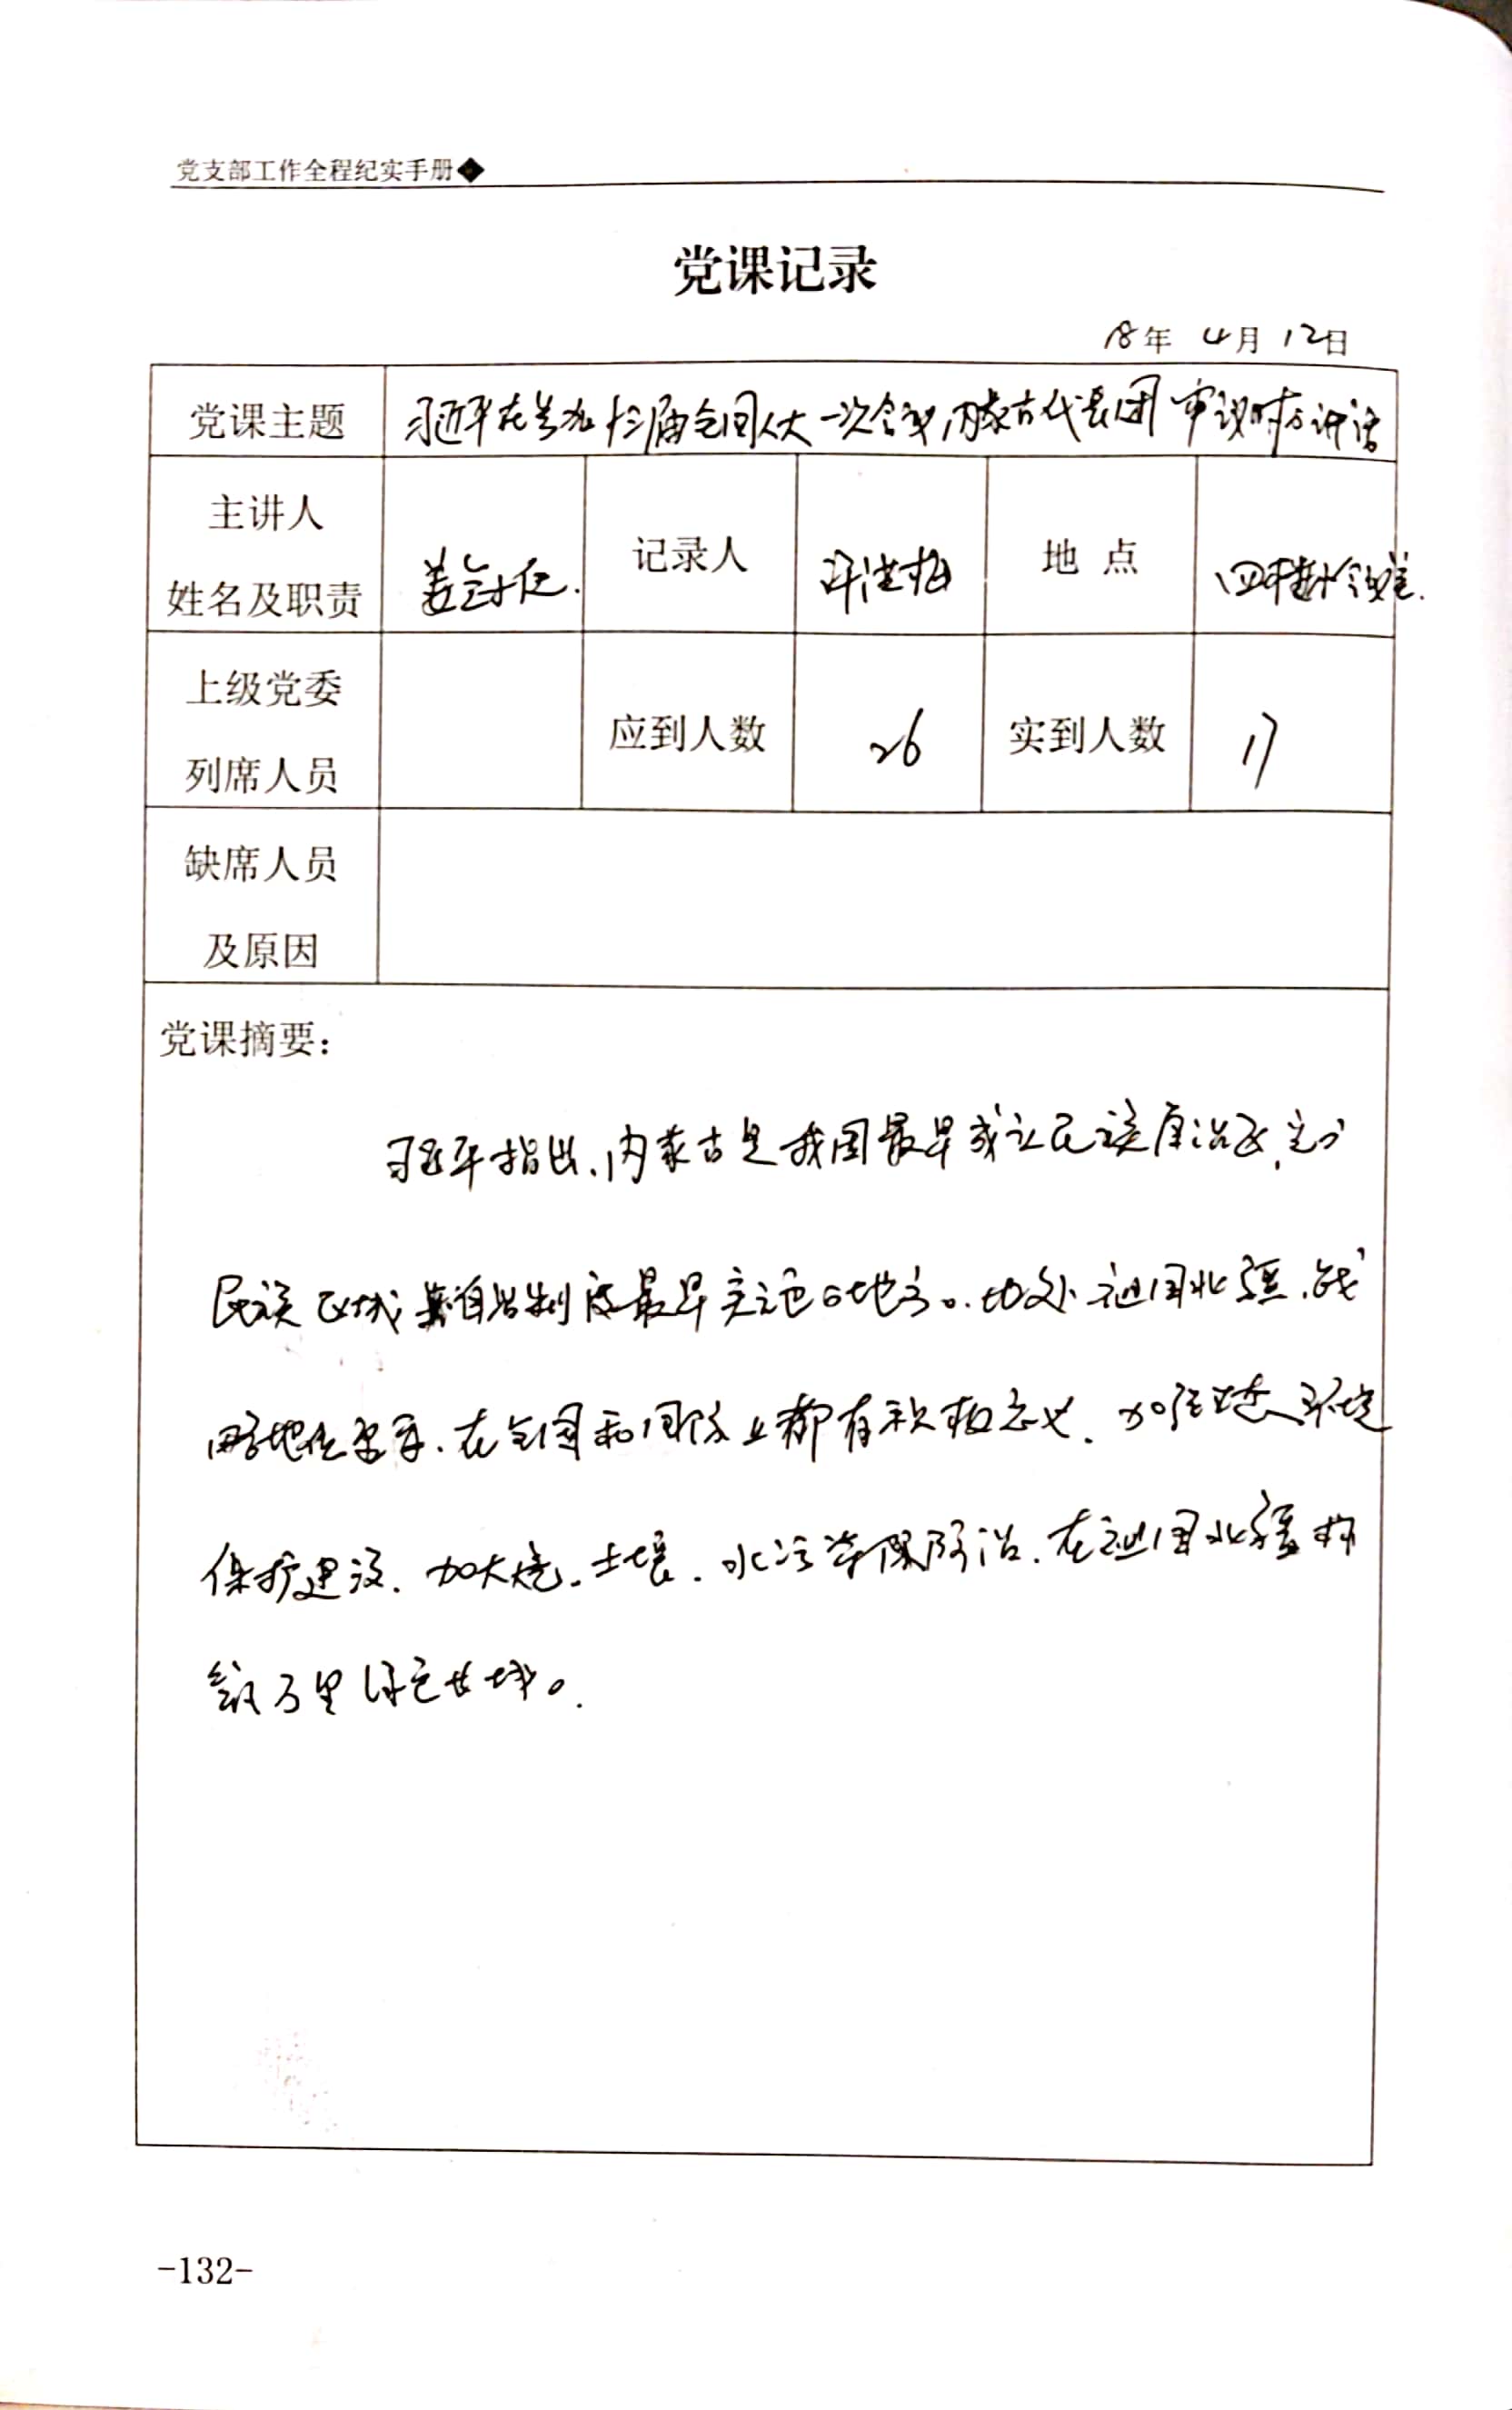 党支部工作全程纪实手册◆
党课记录
18年 4月 12日
党课主题 习近平在参加十三届全国人大一次会议内蒙古代表团审议时的讲话
主讲人
姓名及职责
记录人
地点
上级党委
列席人员
应到人数 26 实到人数 17
缺席人员
及原因
党课摘要:
习近平指出,内蒙古是我国最早成立民族自治区,
民族区域自治制度最早实施的地方。地处祖国北疆,战
略地位重要,在全国和国防上都有积极意义,加强生态环境
保护建设,加大 土壤,水污染 防治,在祖国北疆构
筑万里绿色长城。
-132-